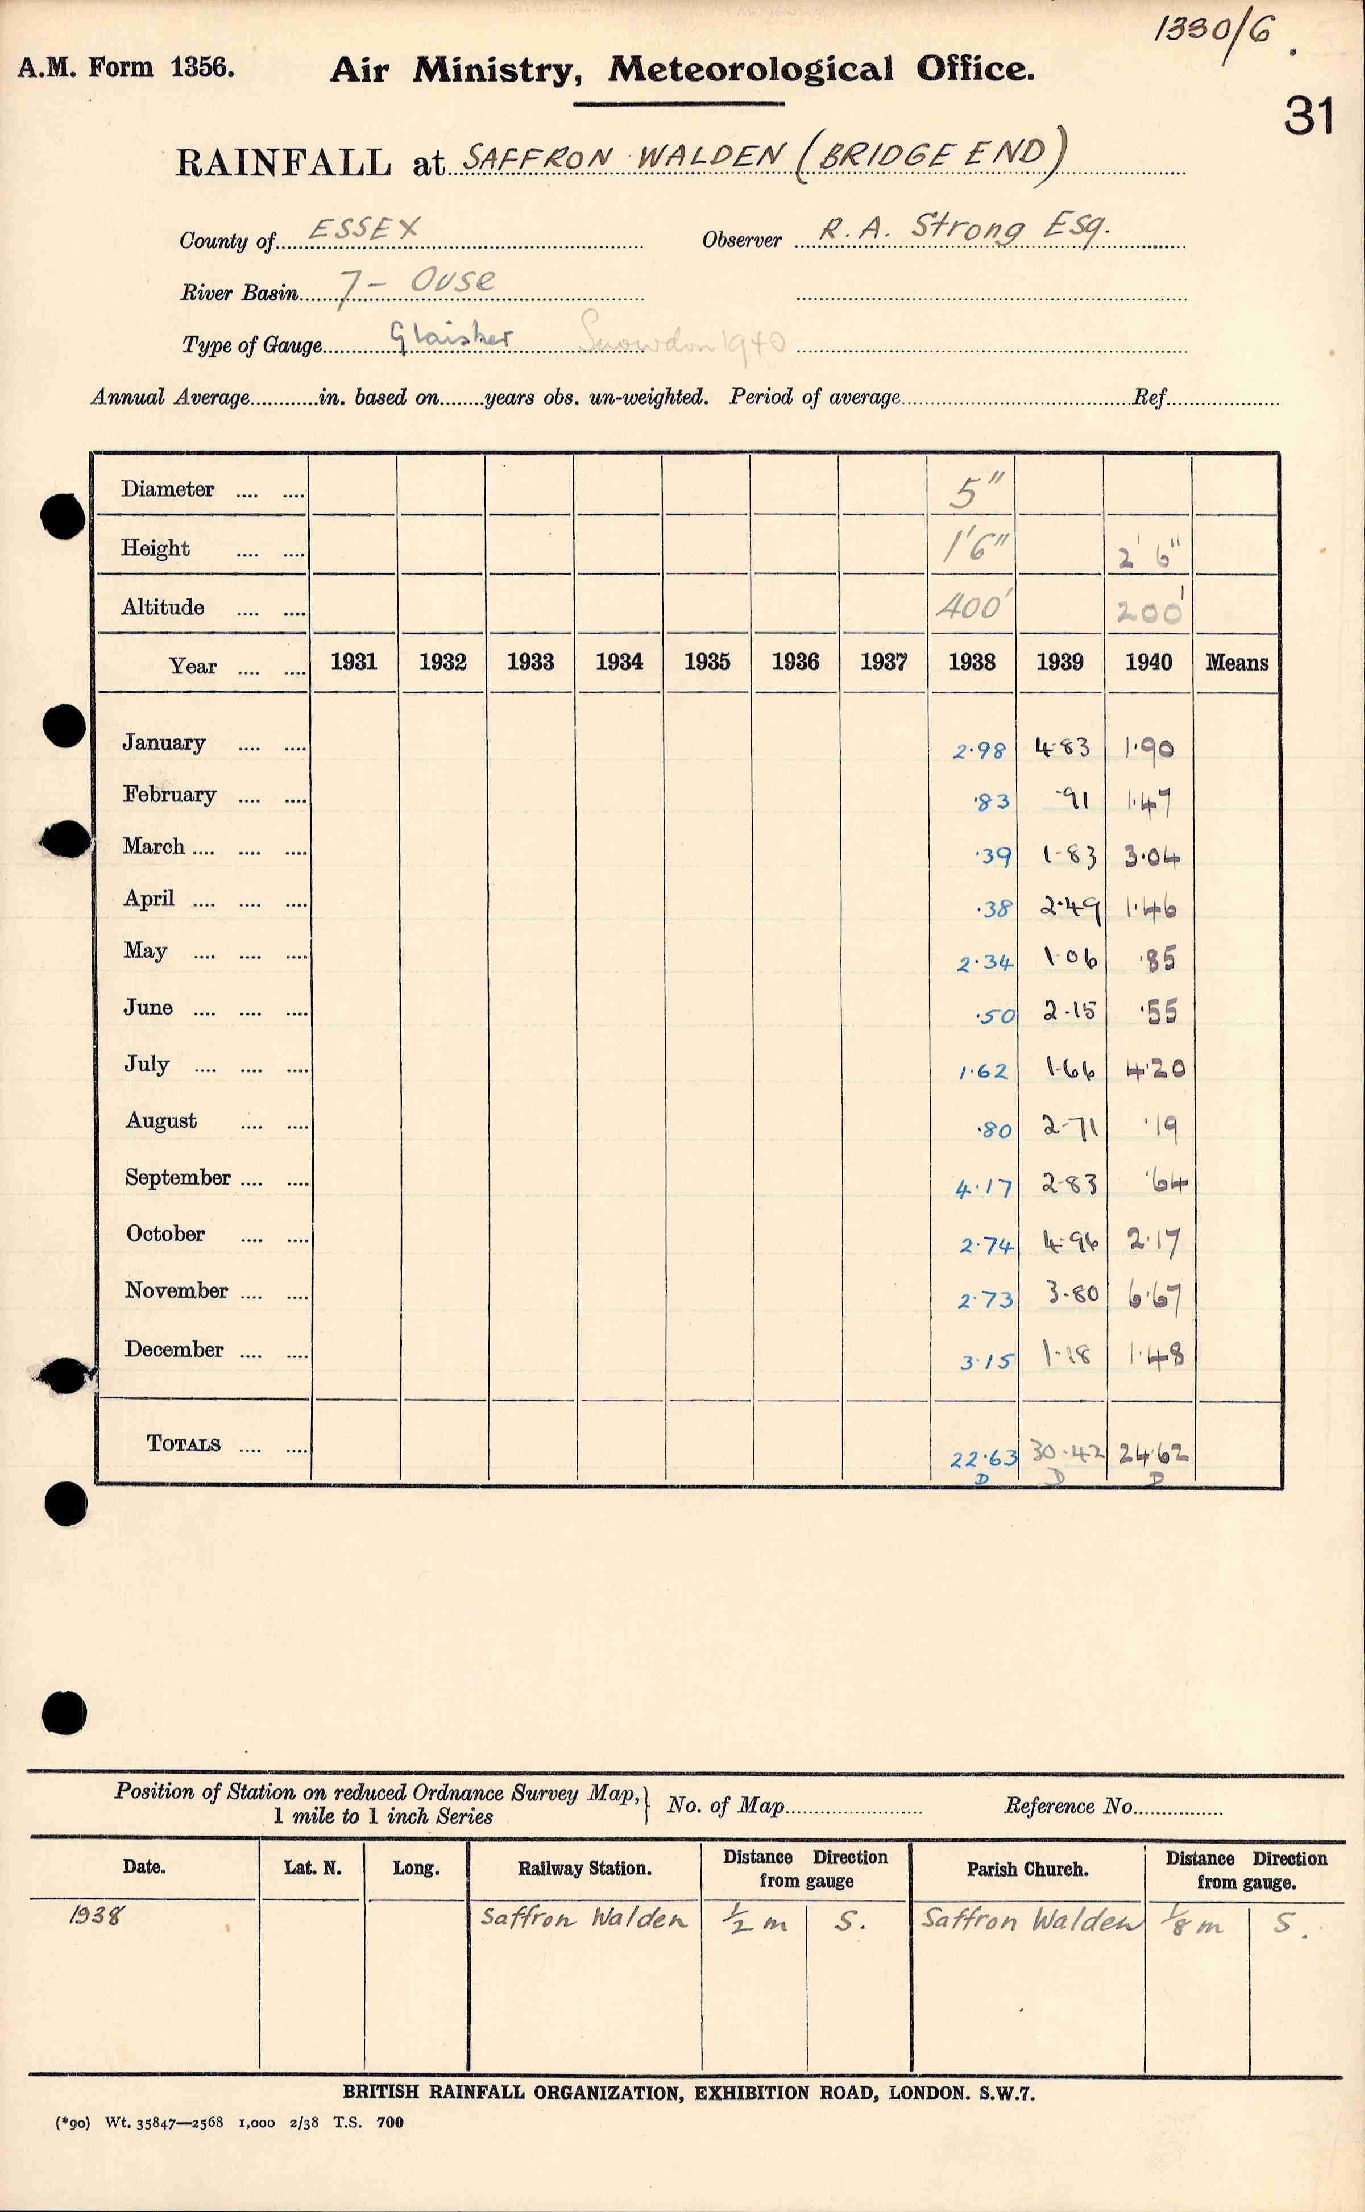 1330/6.
A.M. Form 1356. Air Ministry, Meteorological Office.
31
RAINFALL at SAFFRON WALDEN (BRIDGE END)
County of ESSEX Observer R. A. Strong Esq.
River Basin 7 - Ouse
Type of Gauge Glaisher Snowdon 1940
Annual Average............in. based on.......years obs. un-weighted. Period of average.......................................Ref...................
Diameter .... .... 5"
Height .... .... 1'6" 2' 6"
Altitude .... .... 400' 200'
Year .... .... 1931 1932 1933 1934 1935 1936 1937 1938 1939 1940 Means
January .... .... 2·98 4·83 1·90
February .... .... ·83 ·91 1·47
March .... .... .... ·39 1·83 3·04
April .... .... .... ·38 2·49 1·46
May .... .... .... 2·34 1·06 ·85
June .... .... .... ·50 2·15 ·55
July .... .... .... 1·62 1·66 4·20
August .... .... ·80 2·71 ·19
September .... .... 4·17 2·83 ·64
October .... .... 2·74 4·96 2·17
November .... .... 2·73 3·80 6·67
December .... .... 3·15 1·18 1·48
TOTALS .... .... 22·63 30·42 24·62
D D D
Position of Station on reduced Ordnance Survey Map,} No. of Map........................ Reference No................
1 mile to 1 inch Series
Date. Lat. N. Long. Railway Station. Distance Direction from gauge Parish Church. Distance Direction from gauge.
1938 Saffron Walden ½ m S. Saffron Walden ⅛ m S.
BRITISH RAINFALL ORGANIZATION, EXHIBITION ROAD, LONDON. S.W.7.
(*90) Wt. 35847—2568 1,000 2/38 T.S. 700